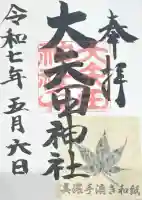 奉拝
大矢田神社
令和七年五月六日
美濃手漉き和紙